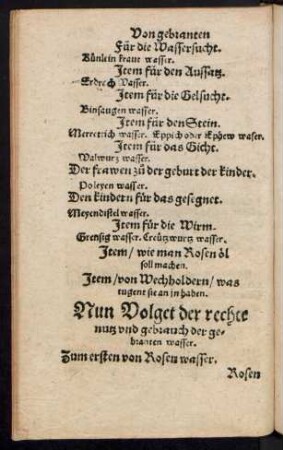 Von gebranten
Für die Wassersucht.
Künlein kraut wasser.
Item für den Aussatz.
Erdrech Wasser.
Item für die Gelsucht.
Binsaugen wasser.
Item für den Stein.
Merretrich wasser. Eppich oder Ephew waser.
Item für das Gicht.
Walwurtz wasser.
Der frawen zů der geburt der kinder.
Poleyen wasser.
Den kindern für das gesegnet.
Meyendistel wasser.
Item für die Wirm.
Grensig wasser. Creützwurtz wasser.
Item/ wie man Rosen öl
soll machen.
Item/ von Wechholdern/ was
tugent sie an jn haben.
Nun Volget der rechte
nutz vnd gebrauch der ge-
branten wasser.
Zum ersten von Rosen wasser.
Rosen